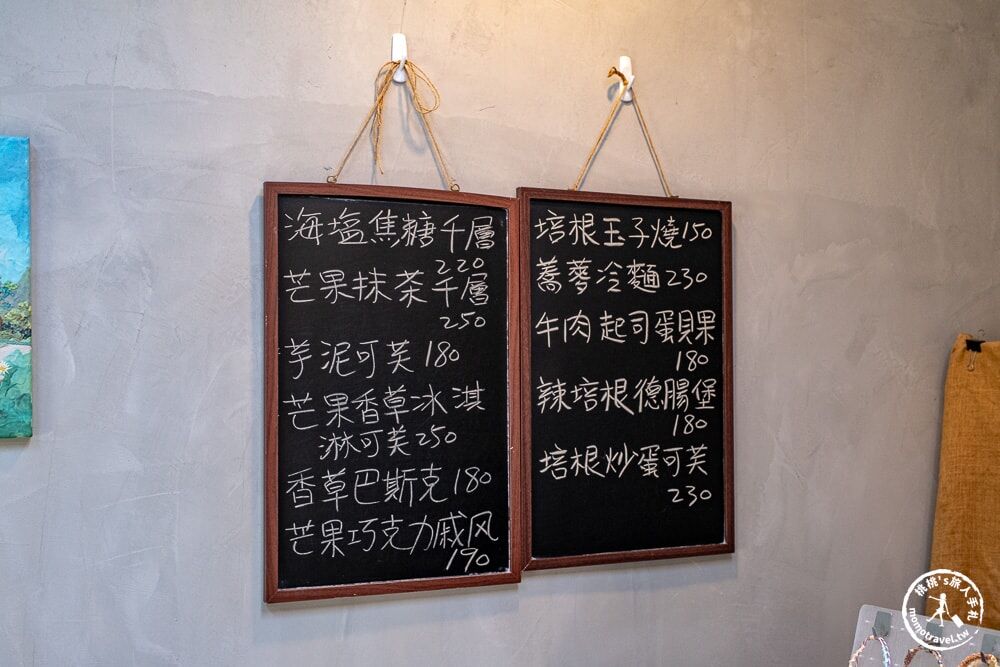 海塩焦糖千層
220
芒果抹茶千層
250
芋泥可芙 180
芒果香草冰淇
淋可芙 250
香草巴斯克 180
芒果巧克力戚风
190
培根玉子燒 150
蕎麥冷麵 230
牛肉起司蛋貝果
180
辣培根德腸堡
180
培根炒蛋可芙
230
桃桃's旅人手札
momotravel.tw